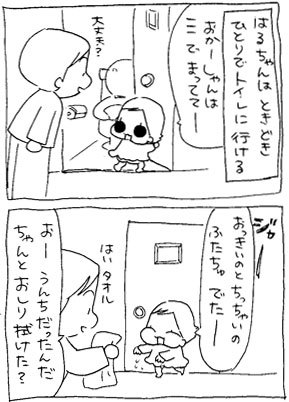 はるちゃんは ときどき
ひとりでトイレに行ける
おかーしゃんは
ここで まってて―
大丈夫?
ジャ―
おっきいのと ちっちゃいの
ふたちゅ でた―
はい タオル
お― うんちだったんだ
ちゃんと おしり 拭けた?